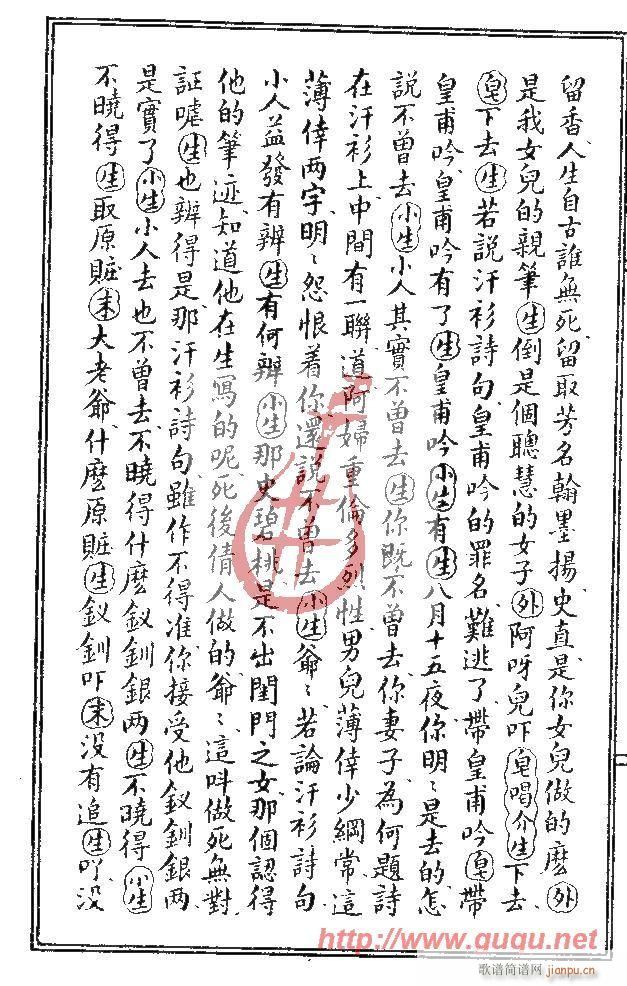 留香人生自古誰無死留取芳名翰墨揚史直是你女兒做的麽外
是我女兒的親筆生倒是個聰慧的女子外阿呀兒吓皂喝介生下去
皂下去生若說汗衫詩句皇甫吟的罪名難逃了帶皇甫吟皂帶
皇甫吟皇甫吟有了生皇甫吟小生有生八月十五夜你明〻是去的怎
說不曾去小生小人其實不曾去生你既不曾去你妻子為何題詩
在汗衫上中間有一聯道阿婦重倫多烈性男兒薄倖少綱常這
薄倖两字明〻怨恨着你還說不曾去小生爺〻若論汗衫詩句
小人益發有辨生有何辨小生那史碧桃是不出閨門之女那個認得
他的筆迹知道他在生寫的呢死後倩人做的爺〻這呌做死無對
証嘘生也辨得是那汗衫詩句雖作不得准你接受他釵釧銀两
是實了小生小人去也不曾去不曉得什麽釵釧銀两生不曉得小生
不曉得生取原賍末大老爺什麽原賍生釵釧吓末没有追生吖没
http://www.ququ.net
歌谱简谱网
jianpu.cn